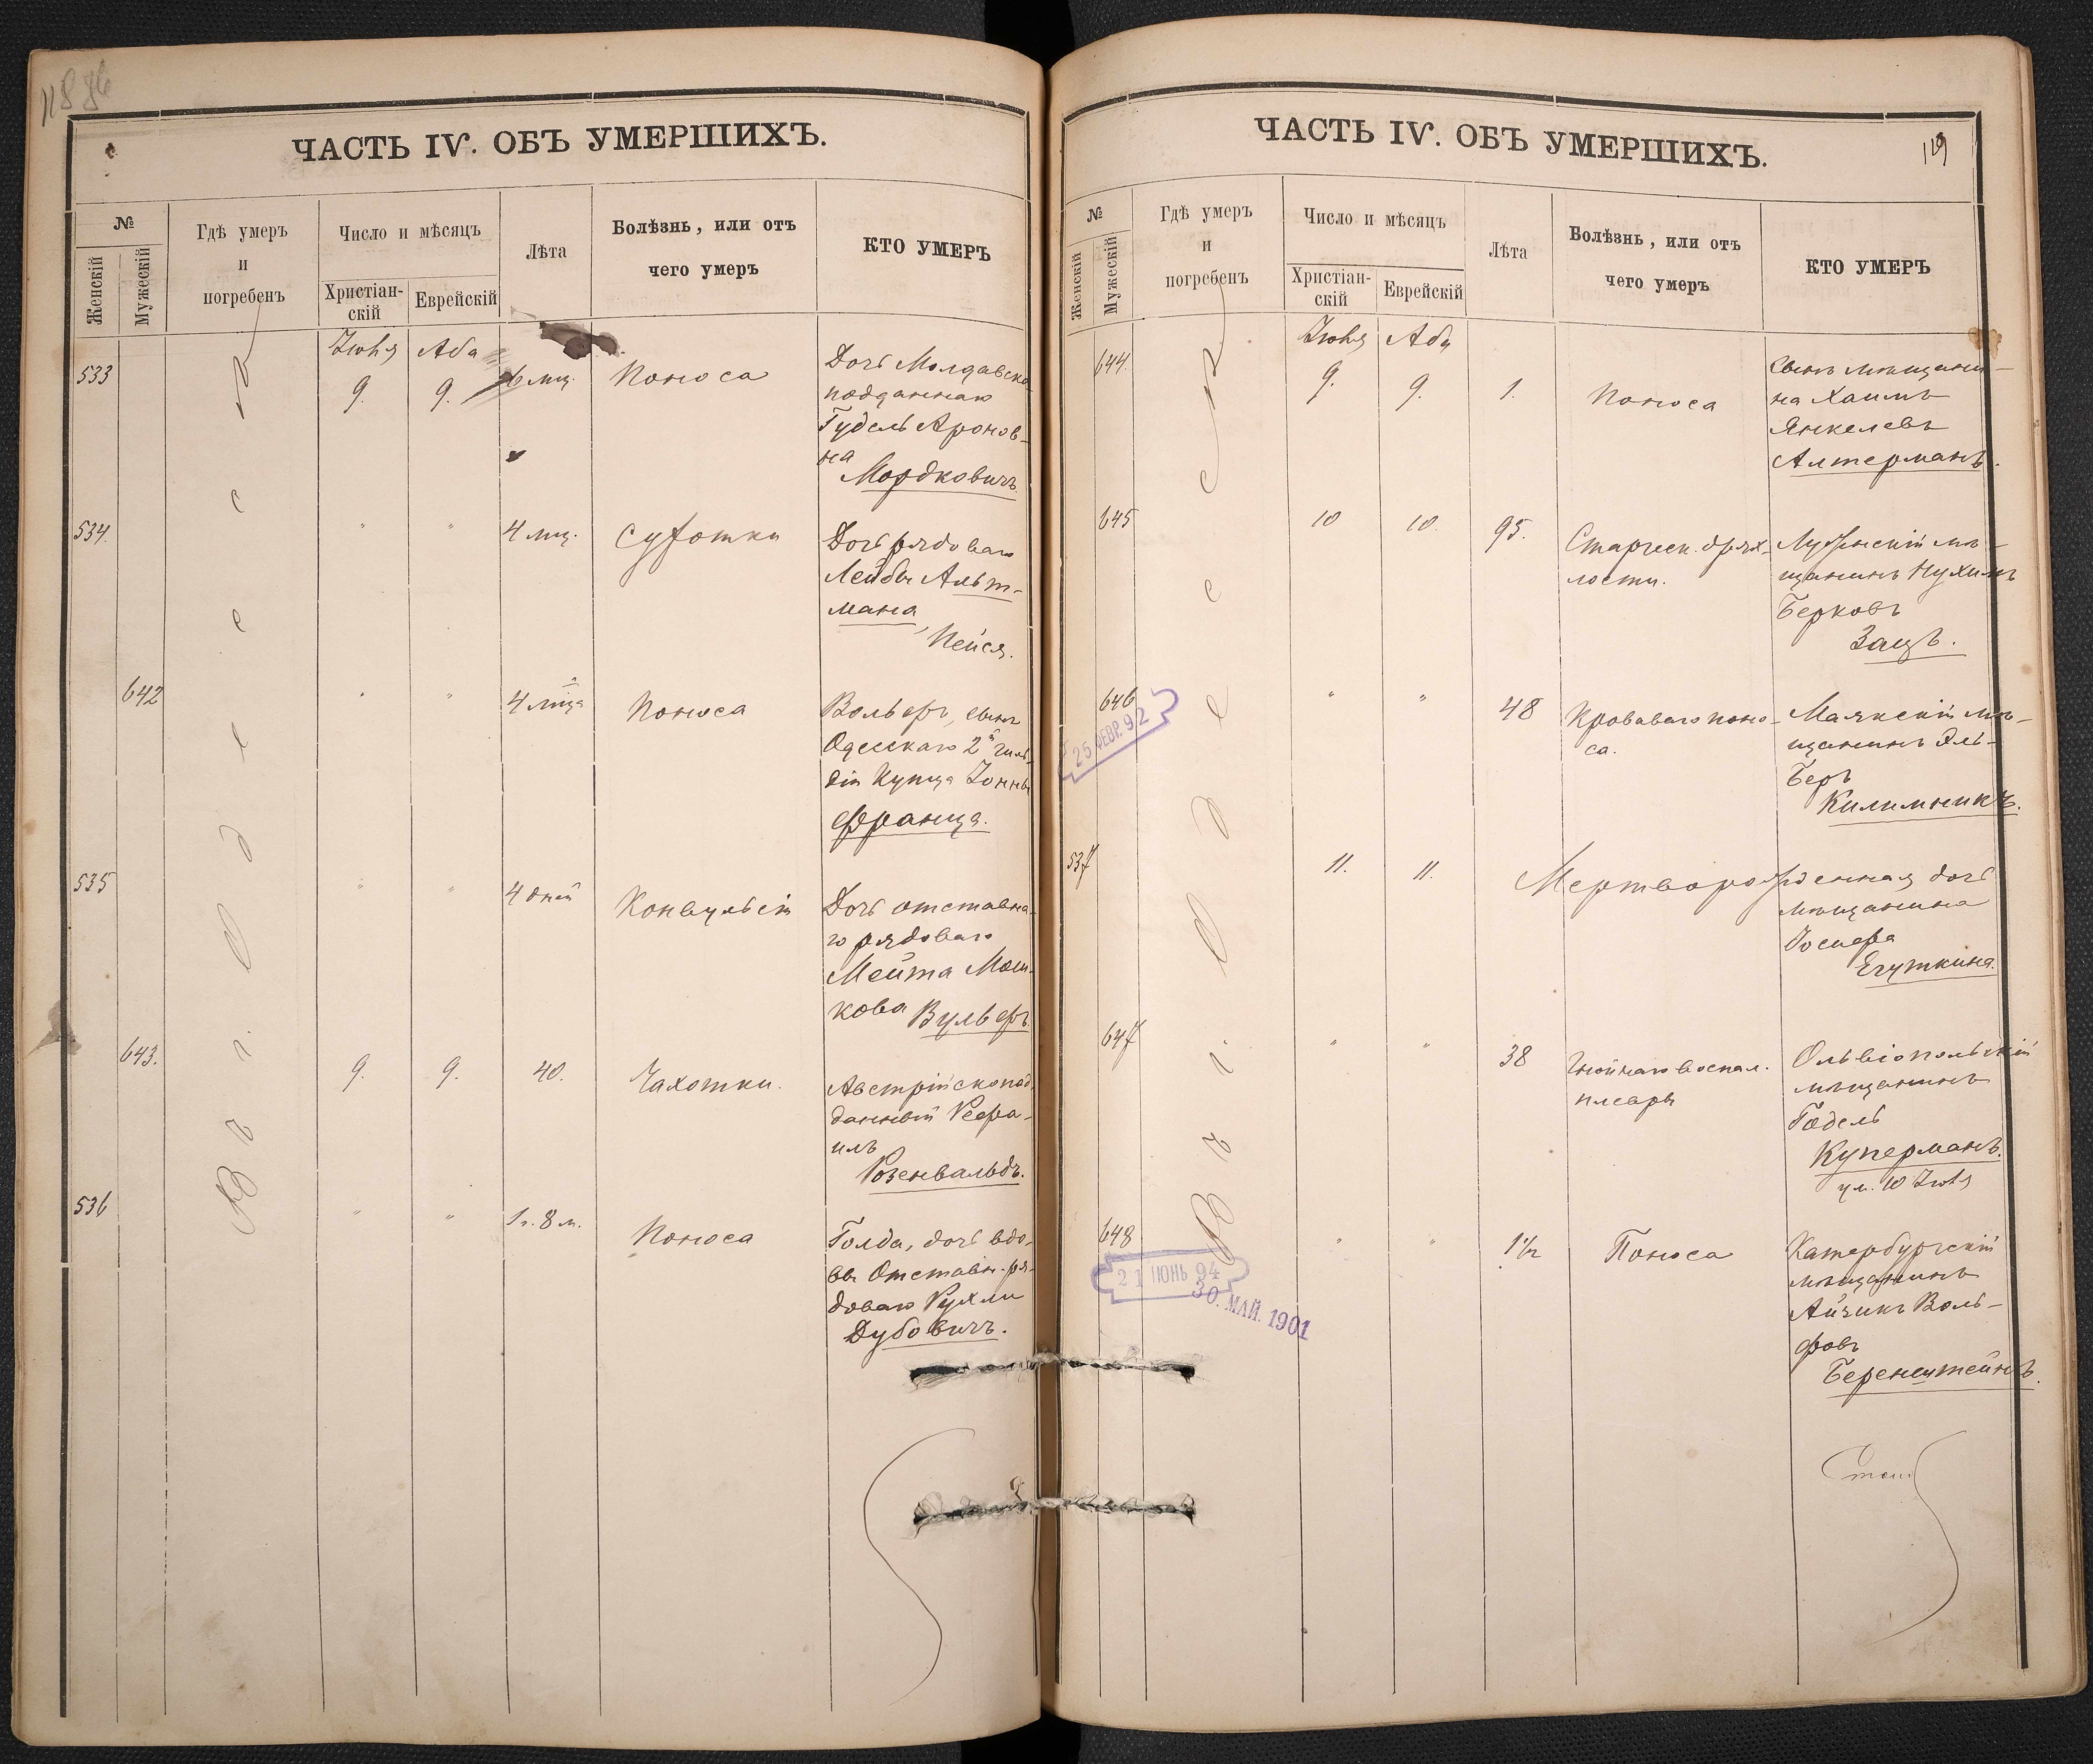 1886
ЧАСТЬ IV. ОБЪ УМЕРШИХЪ.
№
Женскій
Мужескій
Гдѣ умеръ
и
погребенъ
Число и мѣсяцъ
Христіан-
скій
Еврейскій
Лѣта
Болѣзнь, или отъ
чего умеръ
КТО УМЕРЪ
Въ Одессѣ
Іюля Аба
533 9. 9. 6 мц. Поноса Дочь Молдавско
подданнаго
Гудель Аронов-
на
Мордковичъ.
534. " " 4 мц. Сухотки Дочь рядоваго
Лейбы Альт-
мана,
Пейся.
642 " " 4 мца Поноса Вольфъ, сынъ
Одесскаго 2й гиль-
діи Купца Іонны
Франца.
535 " " 4 дней Конвульсіи Дочь отставна-
го рядоваго
Мейта Мош-
кова Вульфъ
643. 9. 9. 40. Чахотки. Австрійскопод
данный Рефа-
илъ
Розенвальдъ.
536 " " 1 г. 8 м. Поноса Голда, дочь вдо-
вы Отставн. ря-
доваго Рухли
Дубовичъ.
ЧАСТЬ IV. ОБЪ УМЕРШИХЪ.
119
№
Женскій
Мужескій
Гдѣ умеръ
и
погребенъ
Число и мѣсяцъ
Христіан-
скій
Еврейскій
Лѣта
Болѣзнь, или отъ
чего умеръ
КТО УМЕРЪ
Въ Одессѣ
Іюля Аба
644. 9. 9. 1. Поноса Сынъ мѣщани-
на Хаимъ
Янкелевъ
Алтерманъ.
645 10 10. 95. Старческ. дрях-
лости.
мѣ-
щанинъ Нухимъ
Берковъ
Зацъ.
646 " " 48 Кроваваго поно-
са.
Маякскій мѣ-
щанинъ Эль-
Беръ
Килимникъ.
25 ФЕВР. 92
537 11. 11. Мертворожденная дочь
мѣщанина
Іосифа
Егуткина.
647 " " 38 Гнойнаго воспал.
плевры
Ольвіопольскій
мѣщанинъ
Годель
Куперманъ.
ум. 10 Іюля
648 " " 1 1/2 Поноса Катербургскій
мѣщанинъ
Айзикъ Воль-
фовъ
Беренштейнъ.
21 ІЮНЬ 94
30. МАЙ. 1901